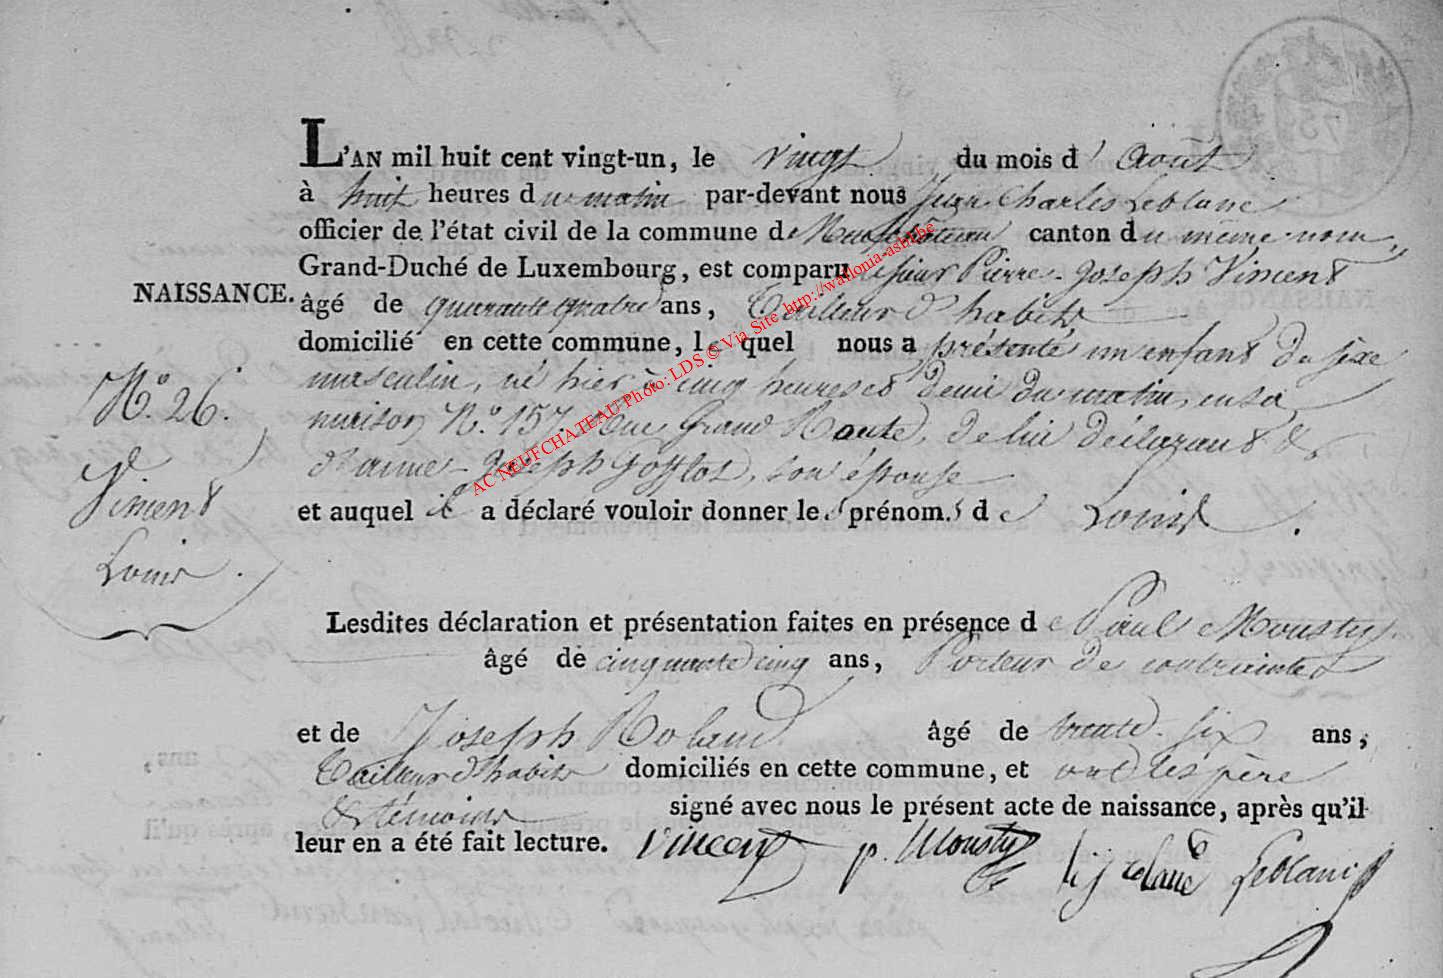 L'AN mil huit cent vingt-un, le vingt du mois d'Aout
à huit heures du matin par-devant nous Jean Charles Leblanc
officier de l'état civil de la commune de Neufchâteau canton du meme nom,
Grand-Duché de Luxembourg, est comparu le sieur Pierre-Joseph Vincent
NAISSANCE.
âgé de quarante quatre ans, Tailleur d'habits
domicilié en cette commune, lequel nous a présenté un enfant du sexe
masculin, né hier à cinq heures et demi du matin, en sa
maison N.º 157. Rue Grand Route, de lui déclarant &
d'anne-Joseph Gofflot, son épouse
et auquel il a déclaré vouloir donner les prénoms de Louis.
N.º 26.
Vincent
Louis.
Lesdites déclaration et présentation faites en présence de Paul Mousty,
âgé de cinquante cinq ans, Porteur de contraintes
et de Joseph Roland âgé de trente-six ans,
Tailleur d'habits domiciliés en cette commune, et ont les père
& témoins signé avec nous le présent acte de naissance, après qu'il
leur en a été fait lecture. Vincent p. Mousty Leblanc
AC NEUFCHATEAU Photo: LDS © Via Site http://wallonia-asbl.be